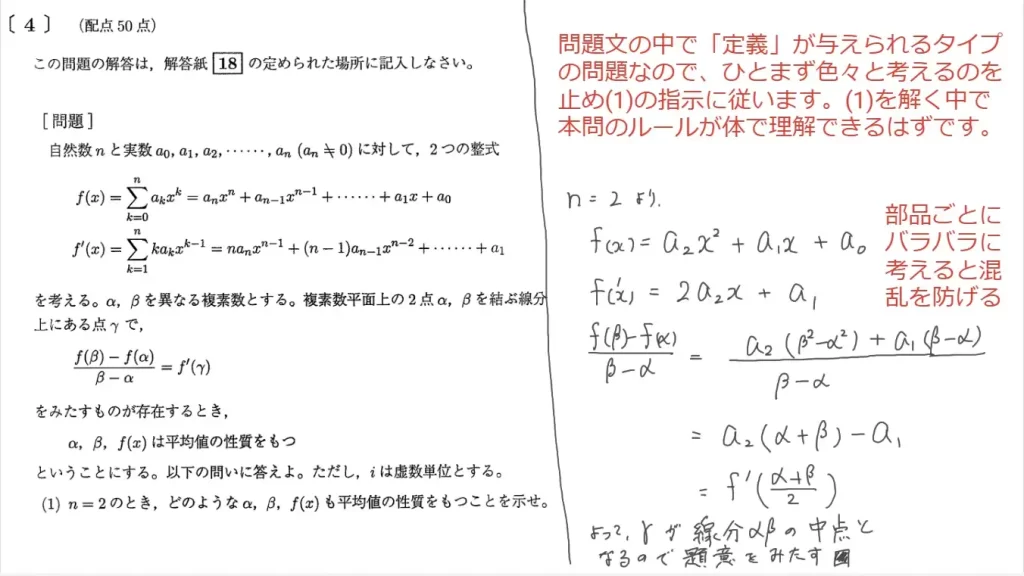 〔 4 〕 （配点 50 点）
この問題の解答は，解答紙 18 の定められた場所に記入しなさい。
［問題］
自然数 n と実数 a₀, a₁, a₂, ⋯⋯, aₙ (aₙ ≒ 0) に対して，2 つの整式
f(x) = Σ_{k=0}^{n} aₖxᵏ = aₙxⁿ + aₙ₋₁xⁿ⁻¹ + ⋯⋯ + a₁x + a₀
f′(x) = Σ_{k=1}^{n} kaₖxᵏ⁻¹ = naₙxⁿ⁻¹ + (n−1)aₙ₋₁xⁿ⁻² + ⋯⋯ + a₁
を考える。α, β を異なる複素数とする。複素数平面上の 2 点 α, β を結ぶ線分
上にある点 γ で，
(f(β) − f(α))/(β − α) = f′(γ)
をみたすものが存在するとき，
α, β, f(x) は平均値の性質をもつ
ということにする。以下の問いに答えよ。ただし，i は虚数単位とする。
(1) n = 2 のとき，どのような α, β, f(x) も平均値の性質をもつことを示せ。
問題文の中で「定義」が与えられるタイプ
の問題なので、ひとまず色々と考えるのを
止め(1)の指示に従います。(1)を解く中で
本問のルールが体で理解できるはずです。
n = 2 より,
f(x) = a₂x² + a₁x + a₀
f′(x) = 2a₂x + a₁
部品ごとに
バラバラに
考えると混
乱を防げる
(f(β) − f(α))/(β − α) = (a₂(β² − α²) + a₁(β − α))/(β − α)
= a₂(α + β) − a₁
= f′((α+β)/2)
よって, γ が 線分αβ の 中点と
なるので 題意をみたす